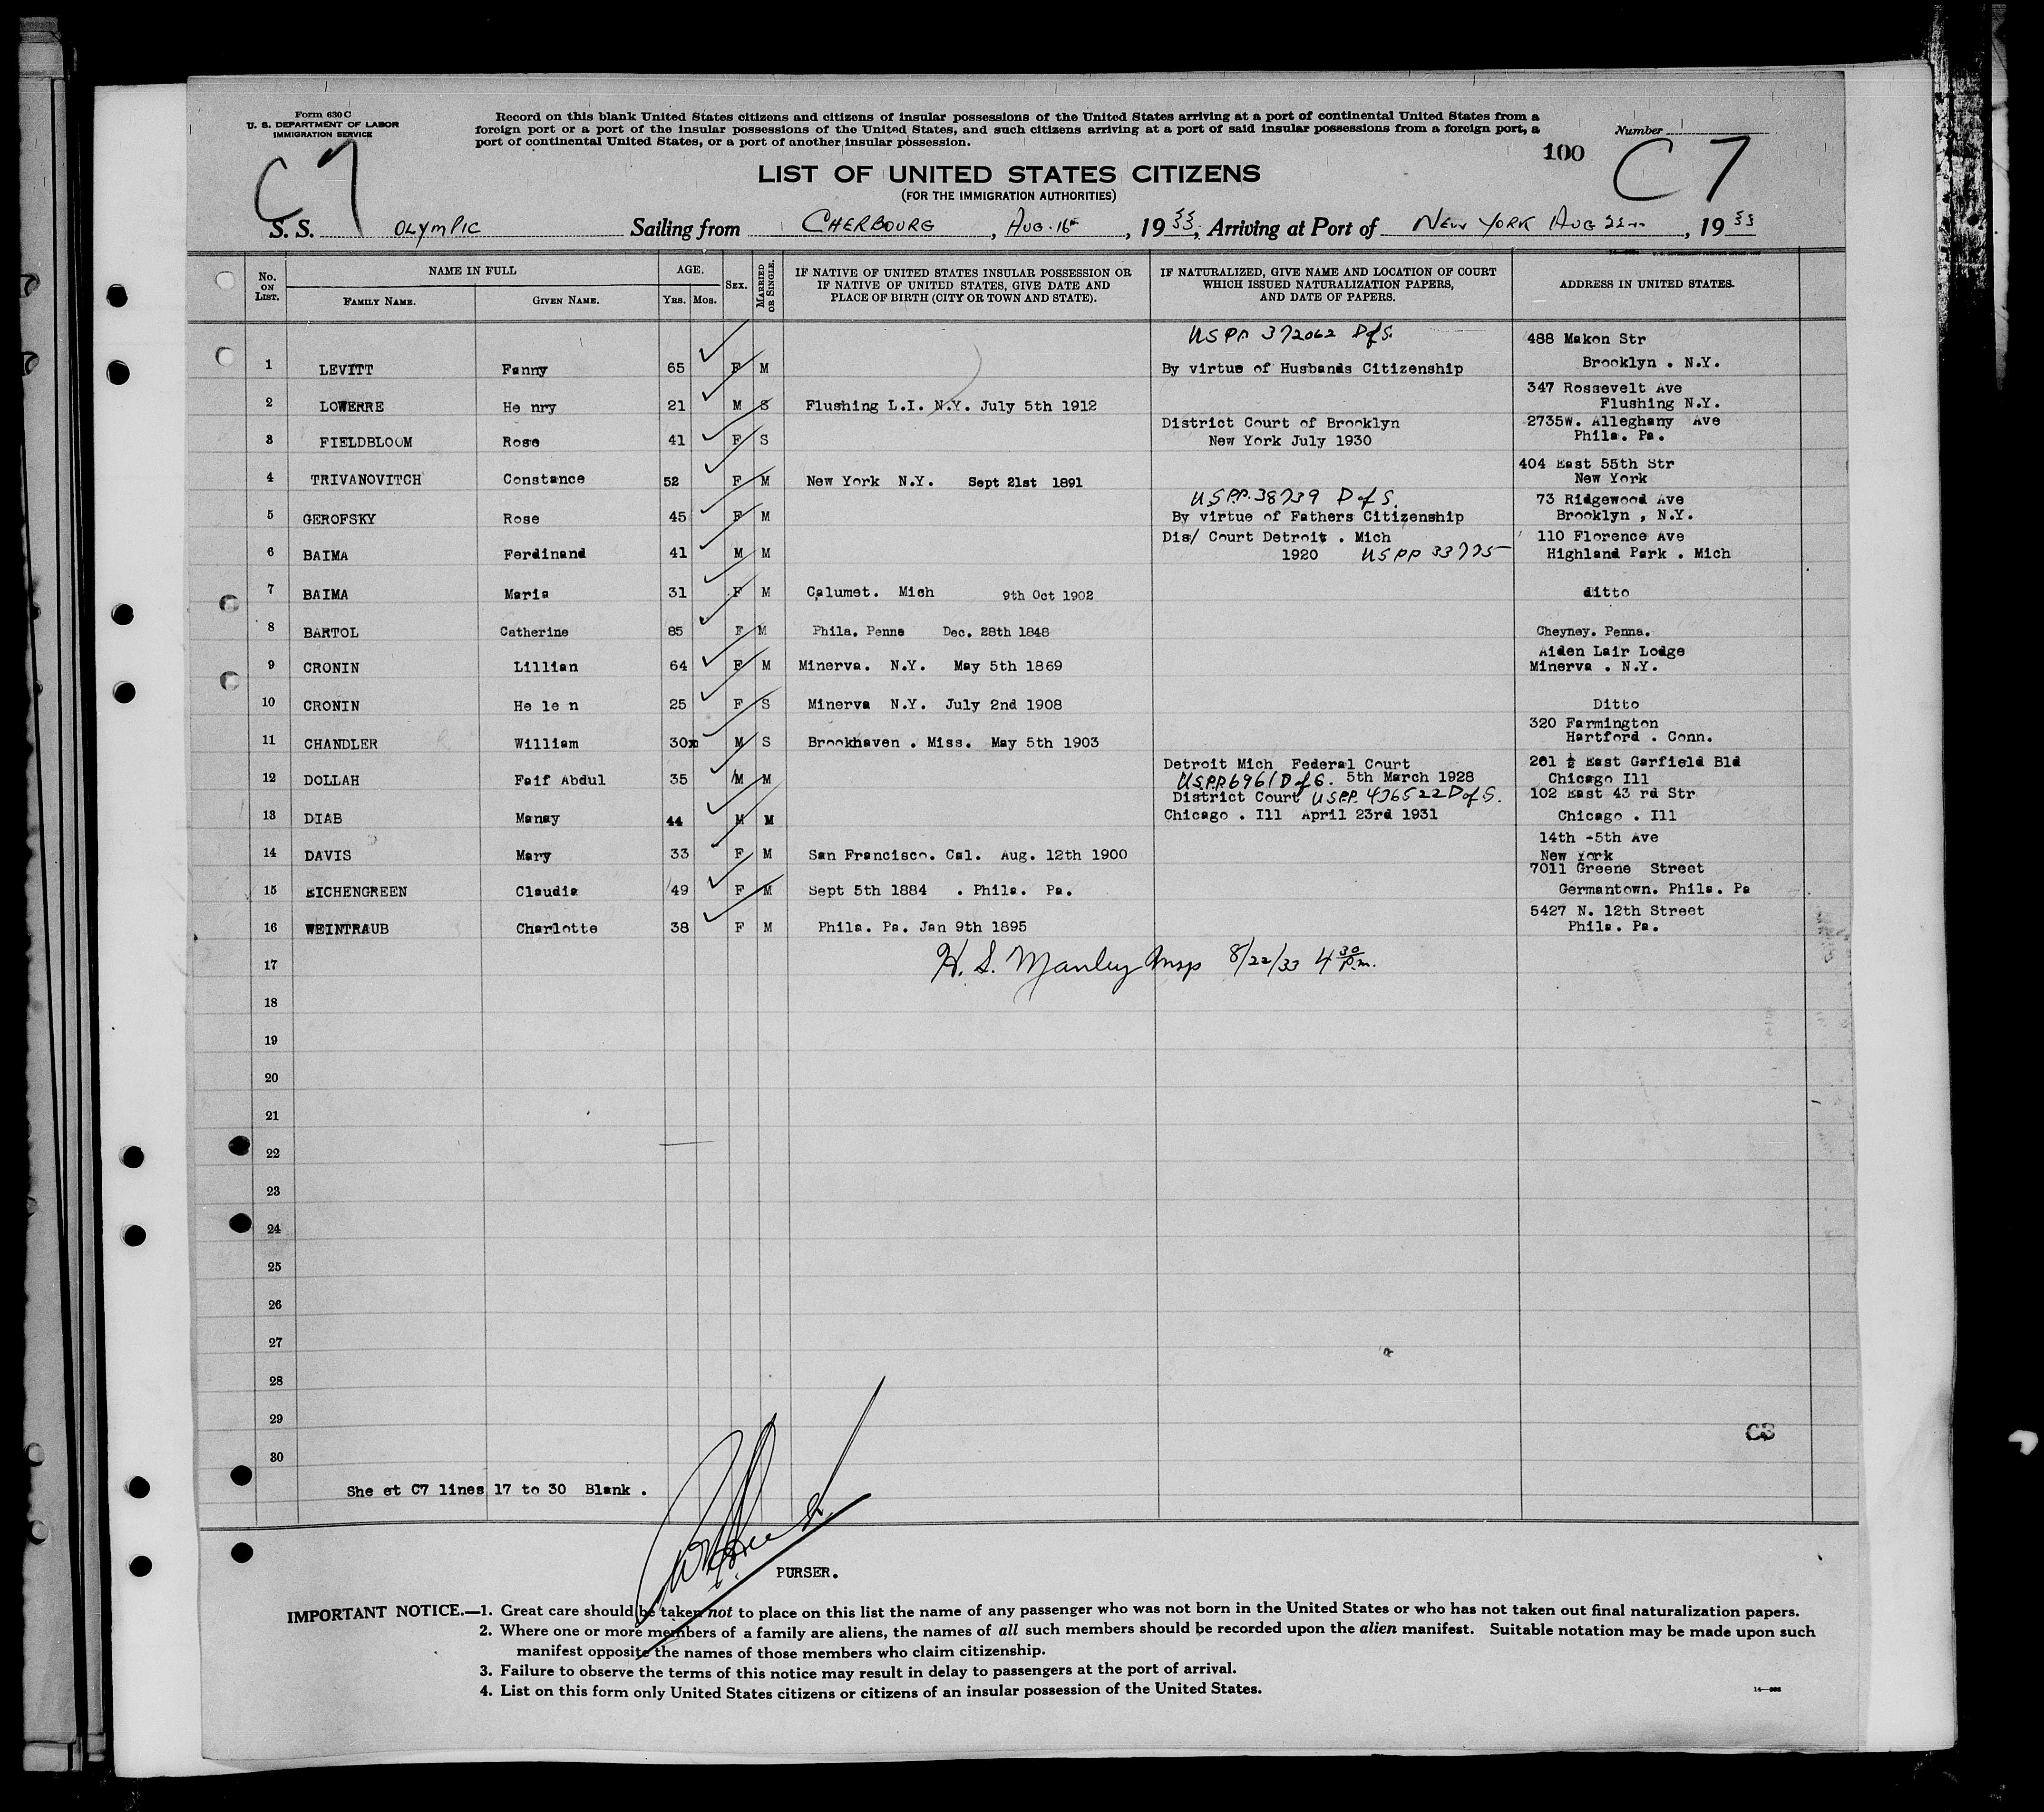 Form 630 C
U. S. DEPARTMENT OF LABOR
IMMIGRATION SERVICE
Record on this blank United States citizens and citizens of insular possessions of the United States arriving at a port of continental United States from a
foreign port or a port of the insular possessions of the United States, and such citizens arriving at a port of said insular possessions from a foreign port, a
port of continental United States, or a port of another insular possession.
Number
100
C 7
C 7
LIST OF UNITED STATES CITIZENS
(FOR THE IMMIGRATION AUTHORITIES)
S. S. OLYMPIC Sailing from CHERBOURG, AUG. 16th, 1933, Arriving at Port of NEW YORK AUG 22nd, 1933
No. ON LIST. NAME IN FULL FAMILY NAME. GIVEN NAME. AGE. YRS. MOS. SEX. MARRIED OR SINGLE. IF NATIVE OF UNITED STATES INSULAR POSSESSION OR IF NATIVE OF UNITED STATES, GIVE DATE AND PLACE OF BIRTH (CITY OR TOWN AND STATE). IF NATURALIZED, GIVE NAME AND LOCATION OF COURT WHICH ISSUED NATURALIZATION PAPERS, AND DATE OF PAPERS. ADDRESS IN UNITED STATES.
USPP. 372062 D of S. 488 Makon Str
1 LEVITT Fanny 65 F M By virtue of Husbands Citizenship Brooklyn . N.Y.
347 Rossevelt Ave
2 LOWERRE He nry 21 M S Flushing L.I. N.Y. July 5th 1912 Flushing N.Y.
District Court of Brooklyn 2735W. Alleghany Ave
3 FIELDBLOOM Rose 41 F S New York July 1930 Phila. Pa.
404 East 55th Str
4 TRIVANOVITCH Constance 52 F M New York N.Y. Sept 21st 1891 New York
USPP. 38739 D of S. 73 Ridgewood Ave
5 GEROFSKY Rose 45 F M By virtue of Fathers Citizenship Brooklyn , N.Y.
Dis/ Court Detroit . Mich 110 Florence Ave
6 BAIMA Ferdinand 41 M M 1920 USPP 33775 Highland Park . Mich
7 BAIMA Maria 31 F M Calumet. Mich 9th Oct 1902 ditto
8 BARTOL Catherine 85 F M Phila. Penna Dec. 28th 1848 Cheyney. Penna.
Aiden Lair Lodge
9 CRONIN Lillian 64 F M Minerva. N.Y. May 5th 1869 Minerva . N.Y.
10 CRONIN He le n 25 F S Minerva N.Y. July 2nd 1908 Ditto
320 Farmington
11 CHANDLER William 30x M S Brookhaven . Miss. May 5th 1903 Hartford . Conn.
Detroit Mich Federal Court 201 ½ East Garfield Bld
12 DOLLAH Faif Abdul 35 M M USPP.6961 D of S. 5th March 1928 Chicago Ill
District Court USPP. 476522 D of S. 102 East 43 rd Str
13 DIAB Manay 44 M M Chicago . Ill April 23rd 1931 Chicago . Ill
14th -5th Ave
14 DAVIS Mary 33 F M San Francisco. Cal. Aug. 12th 1900 New York
7011 Greene Street
15 EICHENGREEN Claudia 49 F M Sept 5th 1884 . Phila. Pa. Germantown. Phila. Pa
5427 N. 12th Street
16 WEINTRAUB Charlotte 38 F M Phila. Pa. Jan 9th 1895 Phila. Pa.
17 H. S. Manley Insp 8/22/33 4 30 P.m.
18
19
20
21
22
23
24
25
26
27
28
29
C3
30
She et C7 lines 17 to 30 Blank .
PURSER.
IMPORTANT NOTICE.—1. Great care should be taken not to place on this list the name of any passenger who was not born in the United States or who has not taken out final naturalization papers.
2. Where one or more members of a family are aliens, the names of all such members should be recorded upon the alien manifest. Suitable notation may be made upon such
manifest opposite the names of those members who claim citizenship.
3. Failure to observe the terms of this notice may result in delay to passengers at the port of arrival.
4. List on this form only United States citizens or citizens of an insular possession of the United States.